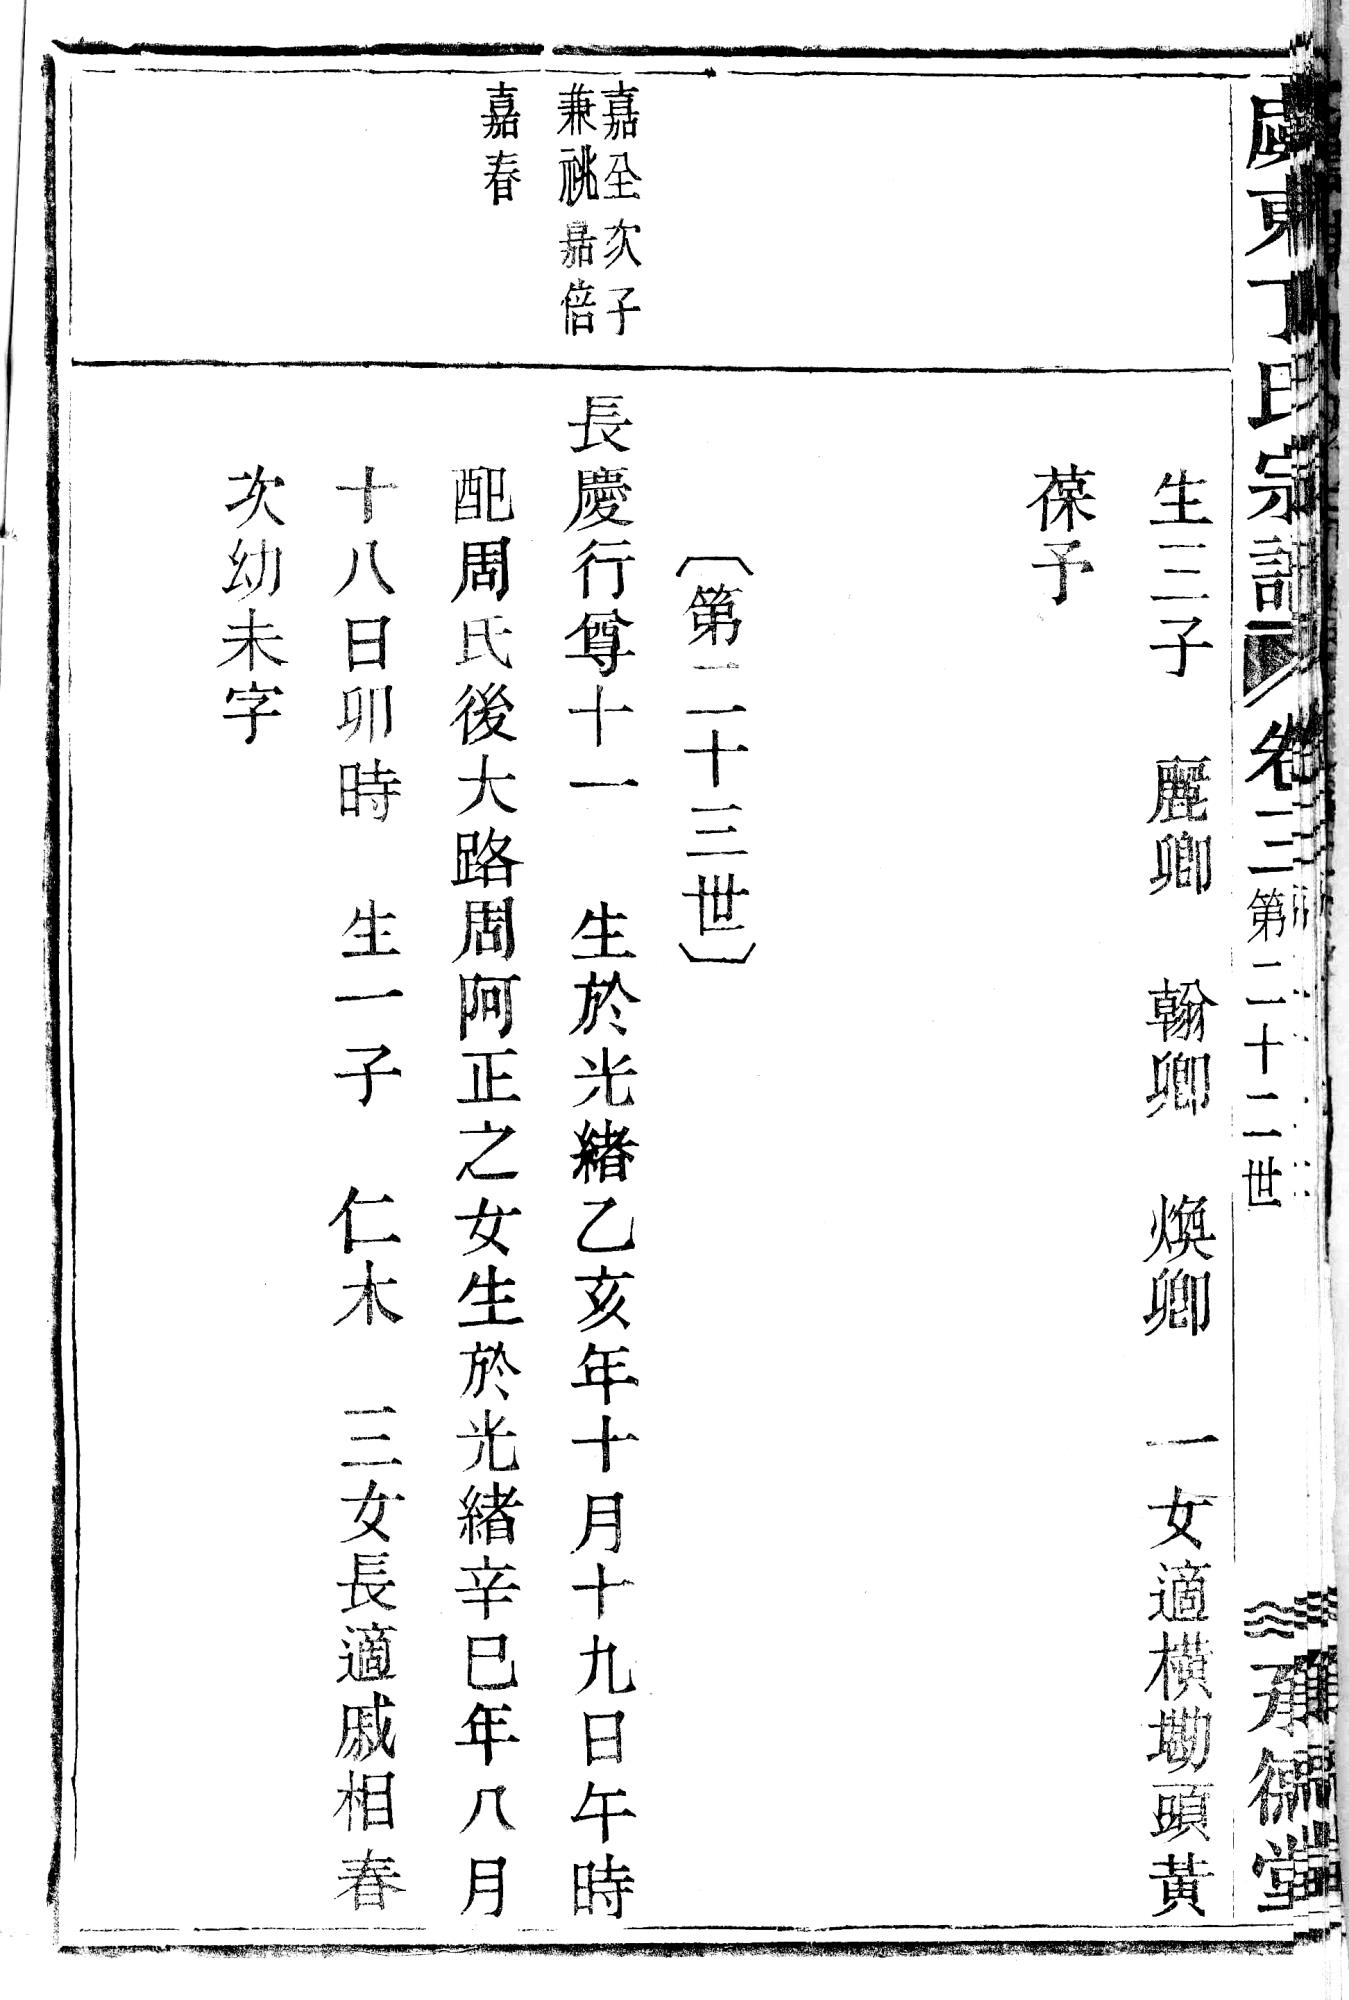 虞東丁氏宗譜 卷三 第二十二世 承德堂
生三子 麗卿 翰卿 煥卿 一女適橫墈頭黃
葆予
〔第二十三世〕
嘉全次子
兼祧嘉倍
嘉春
長慶行尊十一 生於光緒乙亥年十月十九日午時
配周氏後大路周阿正之女生於光緒辛巳年八月
十八日卯時 生一子 仁木 三女長適戚相春
次幼未字